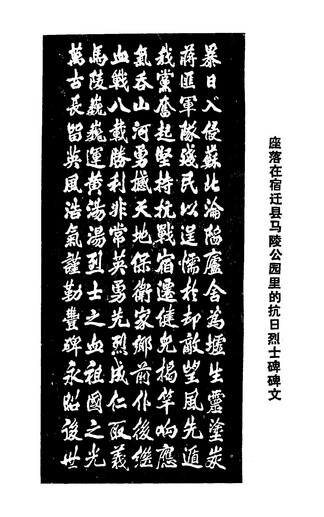 座落在宿迁县马陵公园里的抗日烈士碑碑文
暴日入侵蘇北淪陷廬舍為墟生靈塗炭
蔣匪軍隊殘民以逞懦於却敵望風先遁
我黨奮起堅持抗戰宿遷健兒揭竿响應
氣吞山河勇撼天地保衛家鄉前仆後繼
血戰八載勝利非常英勇先烈成仁取義
馬陵巍巍運黄湯湯烈士之血祖國之光
萬古長留英風浩氣謹勒豐碑永昭後世